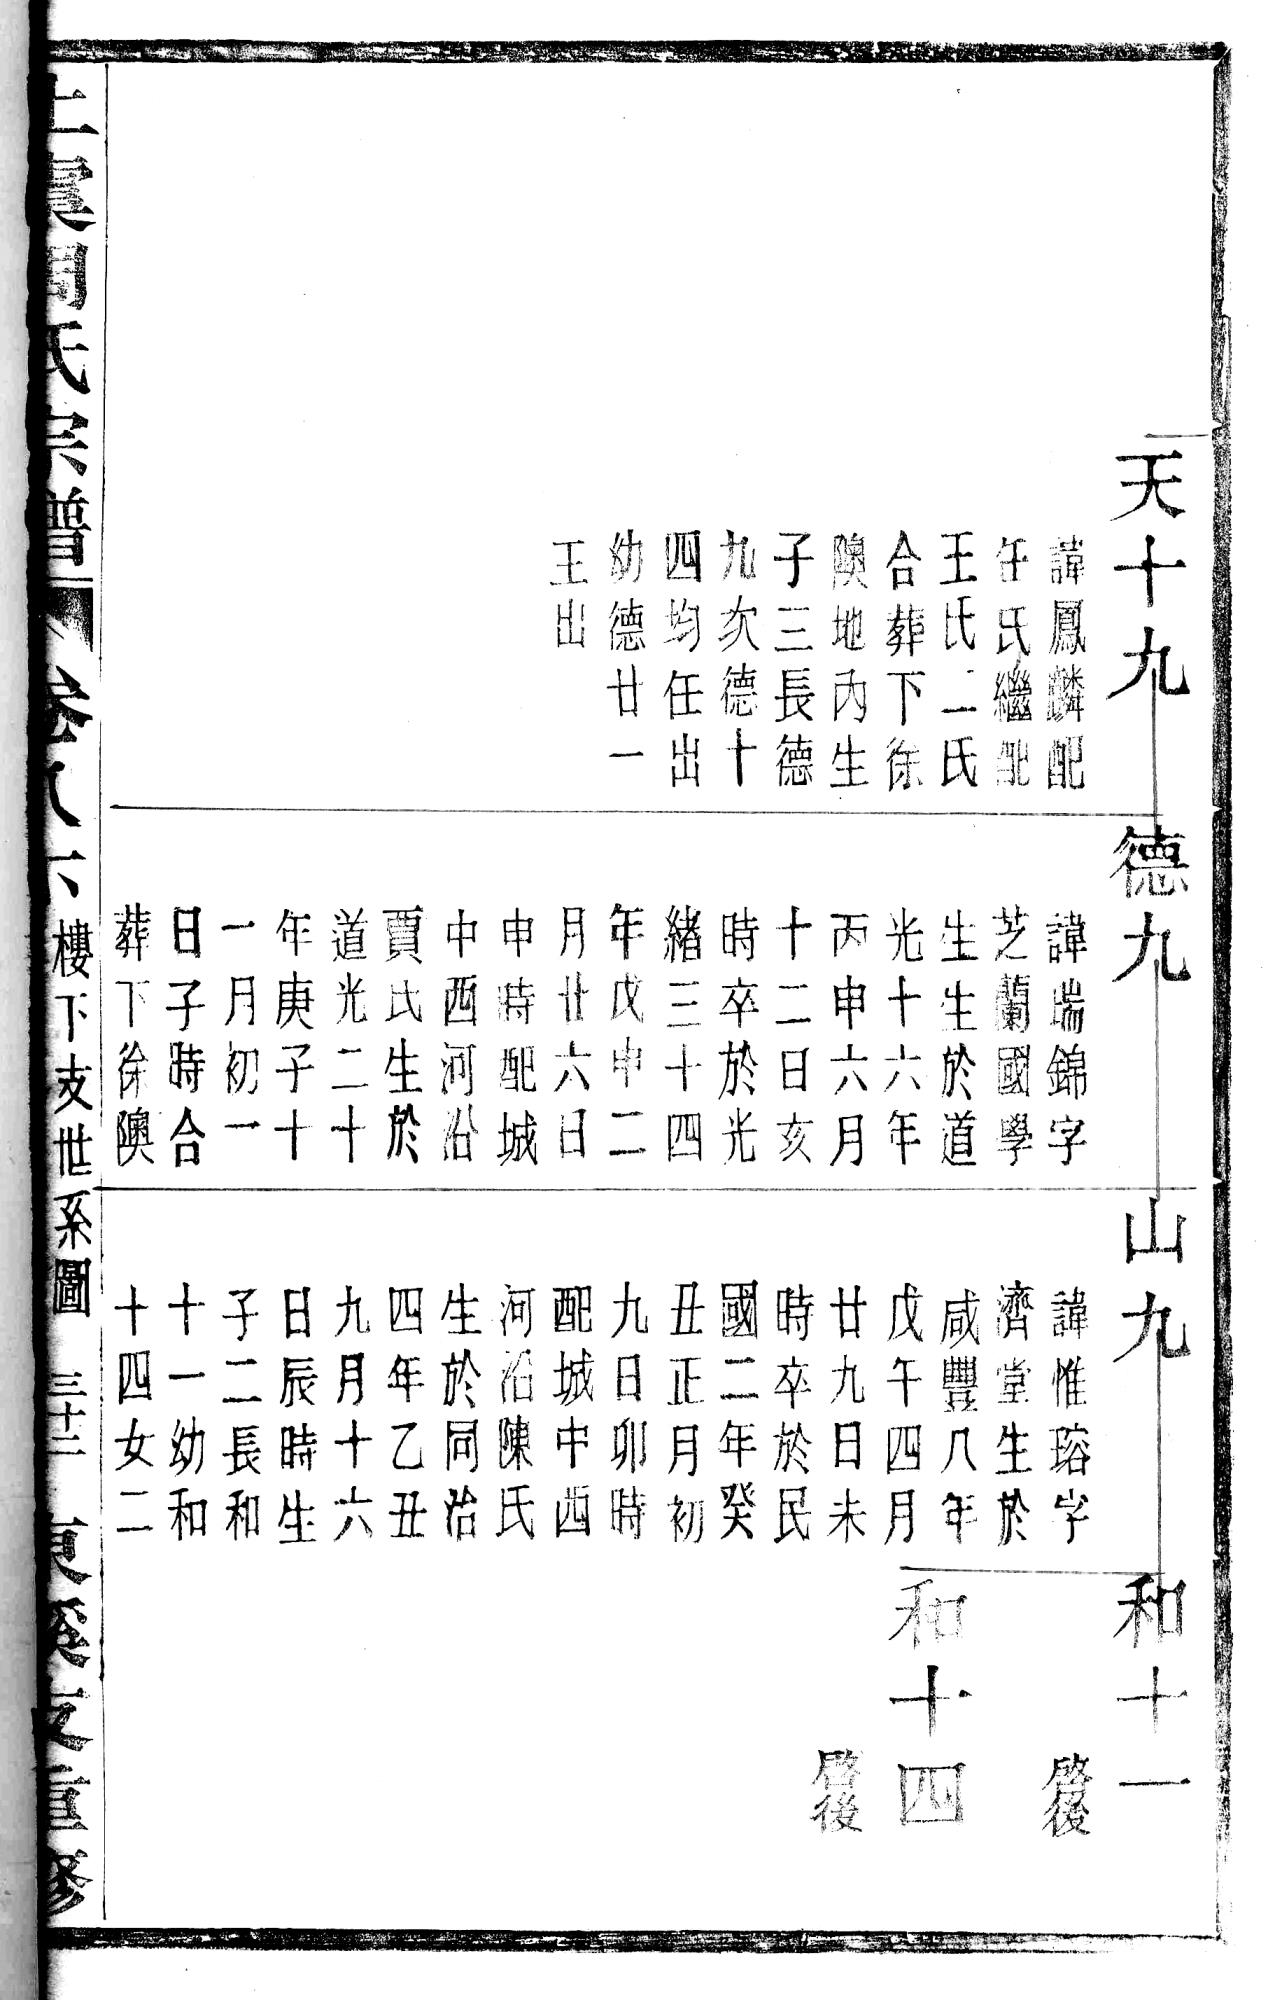 天十九
諱鳳麟配
任氏繼配
王氏二氏
合葬下徐
隩地內生
子三長德
九次德十
四均任出
幼德廿一
王出
德九
諱瑞錦字
芝蘭國學
生生於道
光十六年
丙申六月
十二日亥
時卒於光
緒三十四
年戊申二
月廿六日
申時配城
中西河沿
賈氏生於
道光二十
年庚子十
一月初一
日子時合
葬下徐隩
山九
諱惟瑢字
濟堂生於
咸豐八年
戊午四月
廿九日未
時卒於民
國二年癸
丑正月初
九日卯時
配城中西
河沿陳氏
生於同治
四年乙丑
九月十六
日辰時生
子二長和
十一幼和
十四女二
和十一
啓後
和十四
啓後
上虞周氏宗譜
卷八
樓下支世系圖
三十二
重修